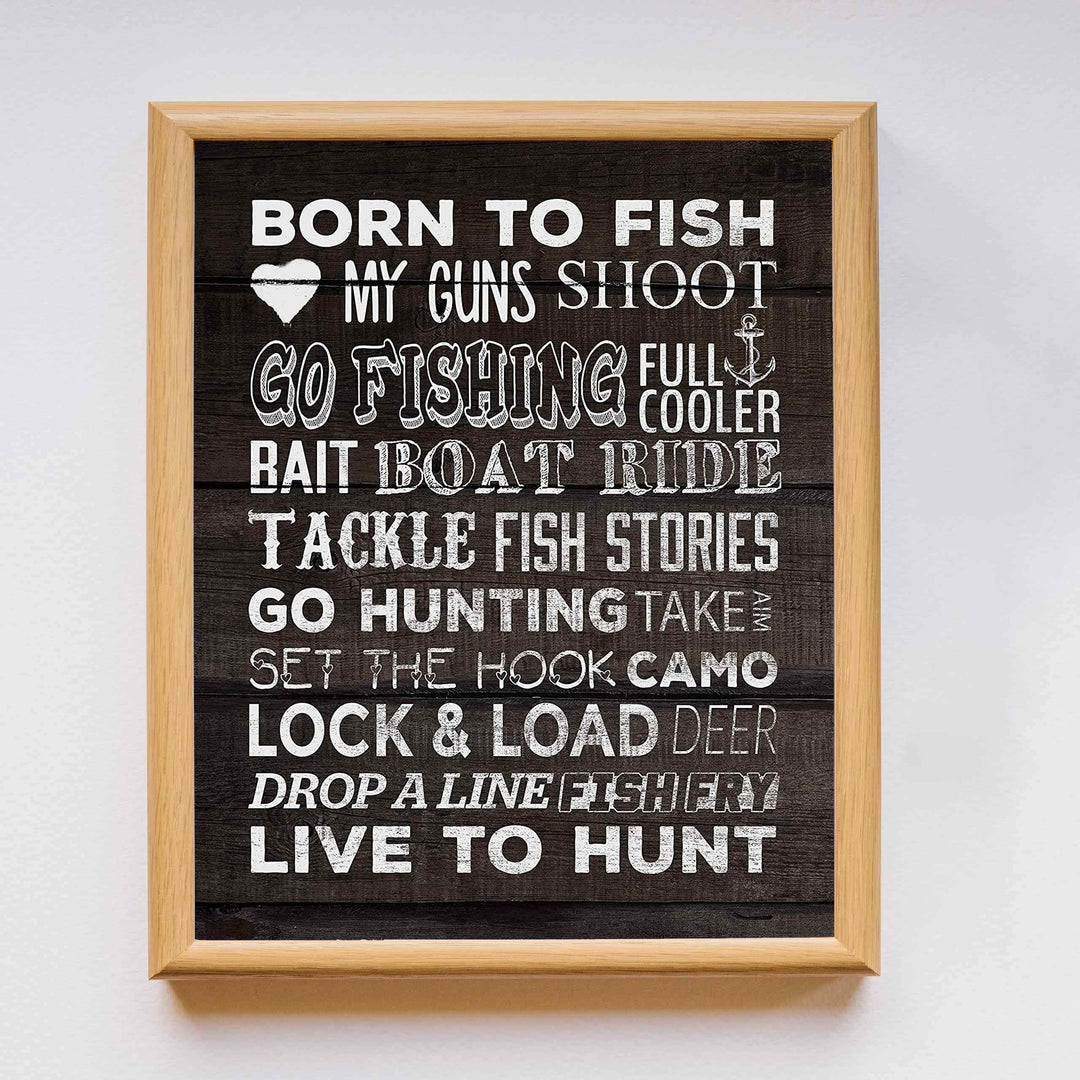 BORN TO FISH
MY GUNS SHOOT
GO FISHING FULL COOLER
BAIT BOAT RIDE
TACKLE FISH STORIES
GO HUNTING TAKE AIM
SET THE HOOK CAMO
LOCK & LOAD DEER
DROP A LINE FISH FRY
LIVE TO HUNT